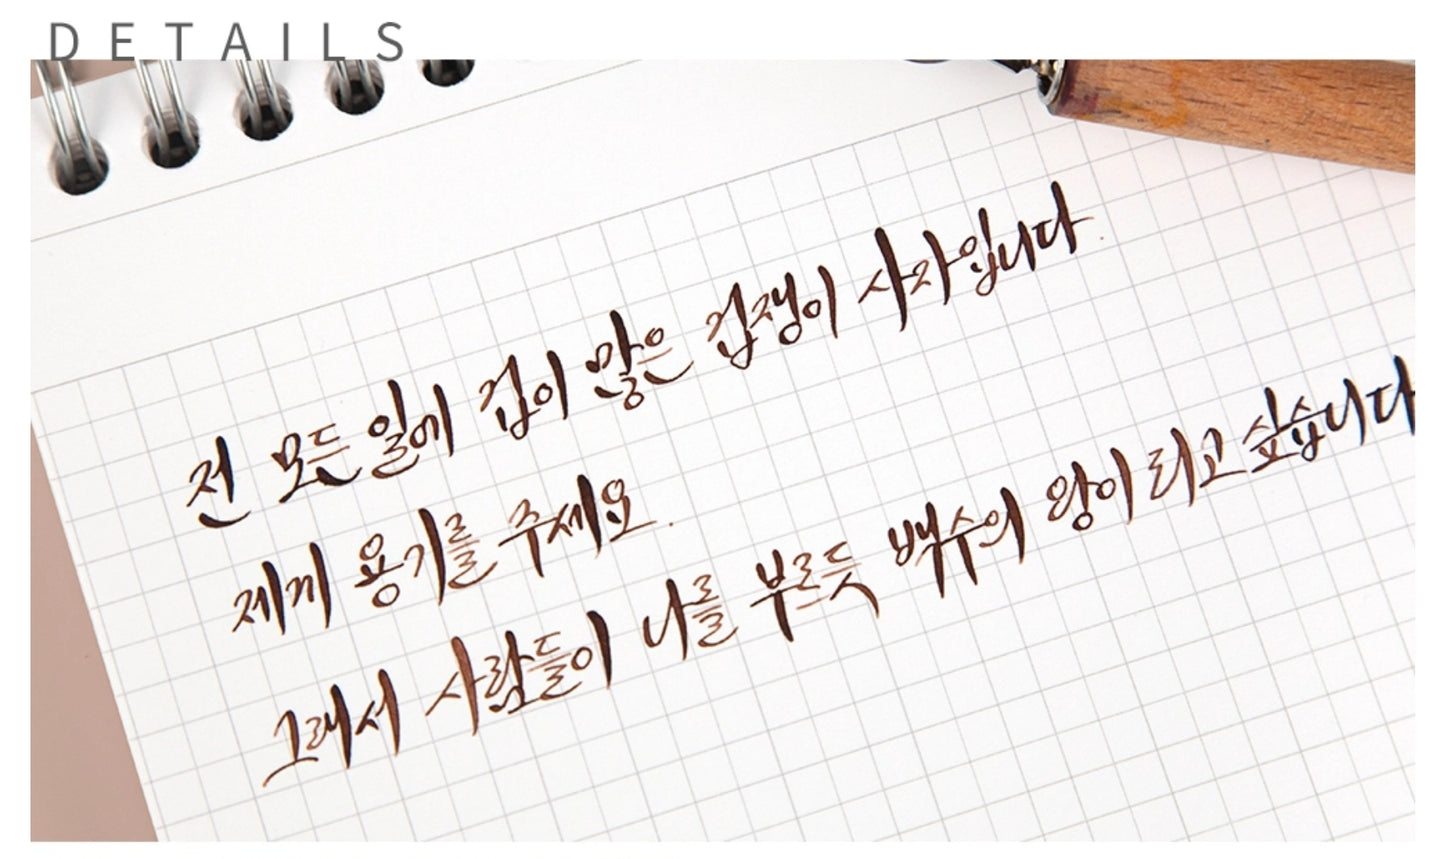 DETAILS
전 모든 일에 겁이 많은 겁쟁이 사자입니다.
제게 용기를 주세요.
그래서 사람들이 나를 부르듯 백수의 왕이 되고 싶습니다